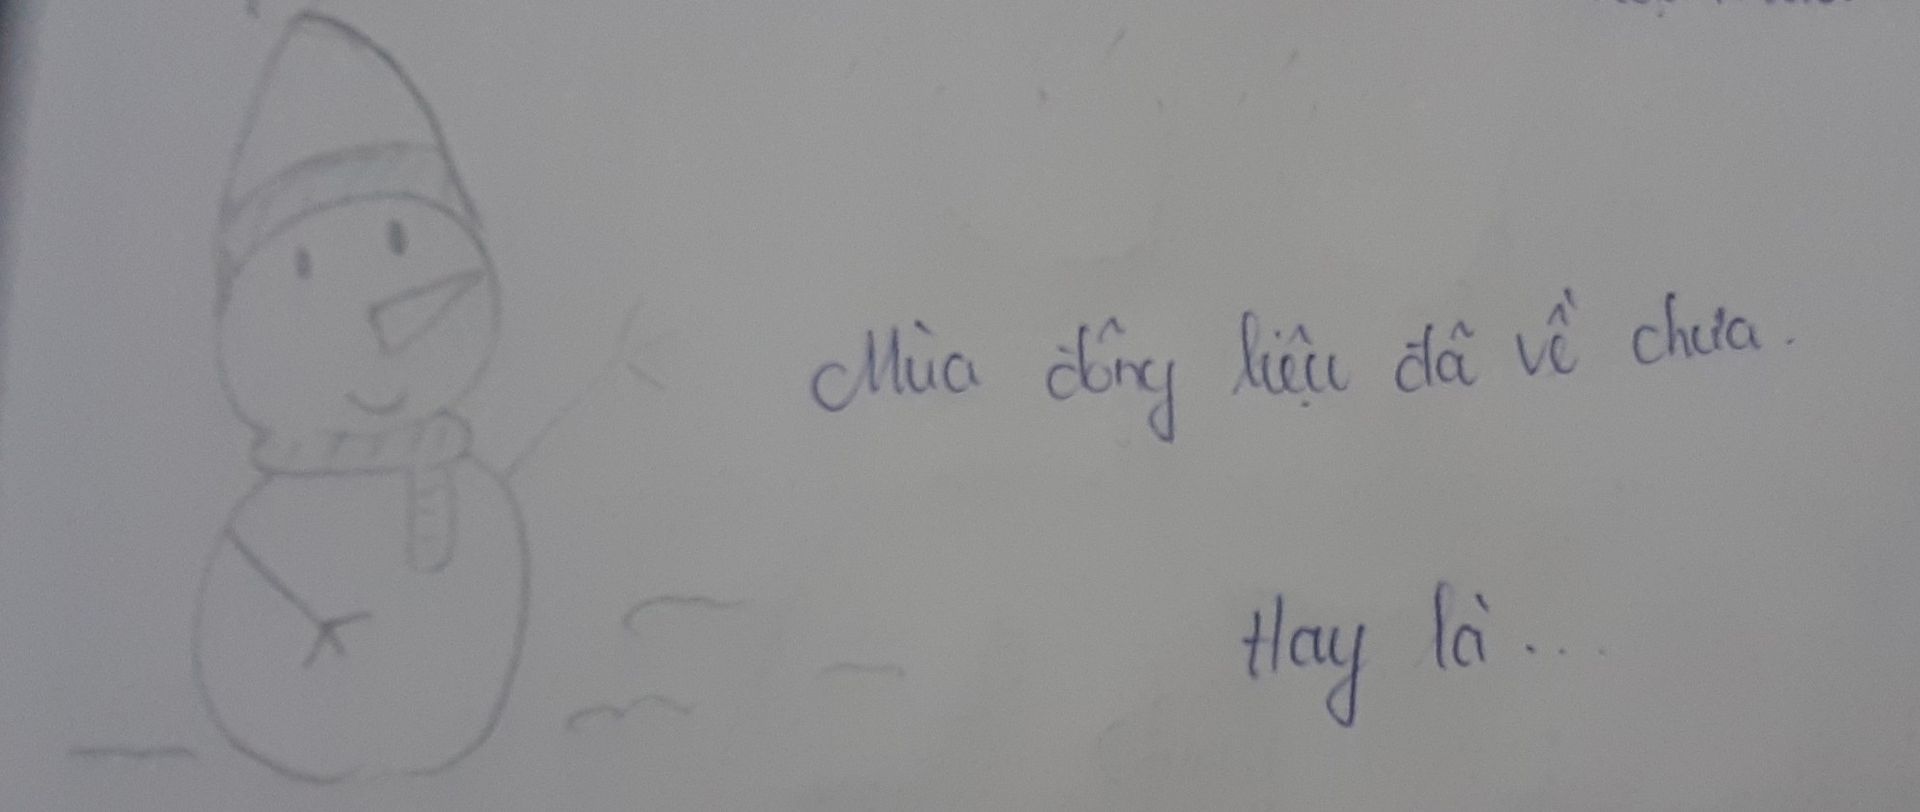 Mùa đông liệu đã về chưa.
Hay là...